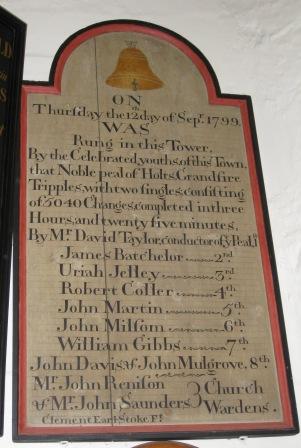 ON
Thursday the 12th day of Sepr. 1799.
WAS
Rung in this Tower,
By the Celebrated youths of this Town,
that Noble peal of Holts, Grandfire
Tripples, with two singles, consisting
of 5040 Changes, completed in three
Hours, and twenty five minutes,
By Mr. David Taylor, conductor of ye Peal, 1st
James Batchelor 2nd.
Uriah Jeffey 3rd.
Robert Coller 4th.
John Martin 5th
John Milsom 6th
William Gibbs 7th
John Davis & John Mulgrove. 8th
Mr. John Renison } Church
& Mr. John Saunders } Wardens.
Clement Earl Stoke. Ft.